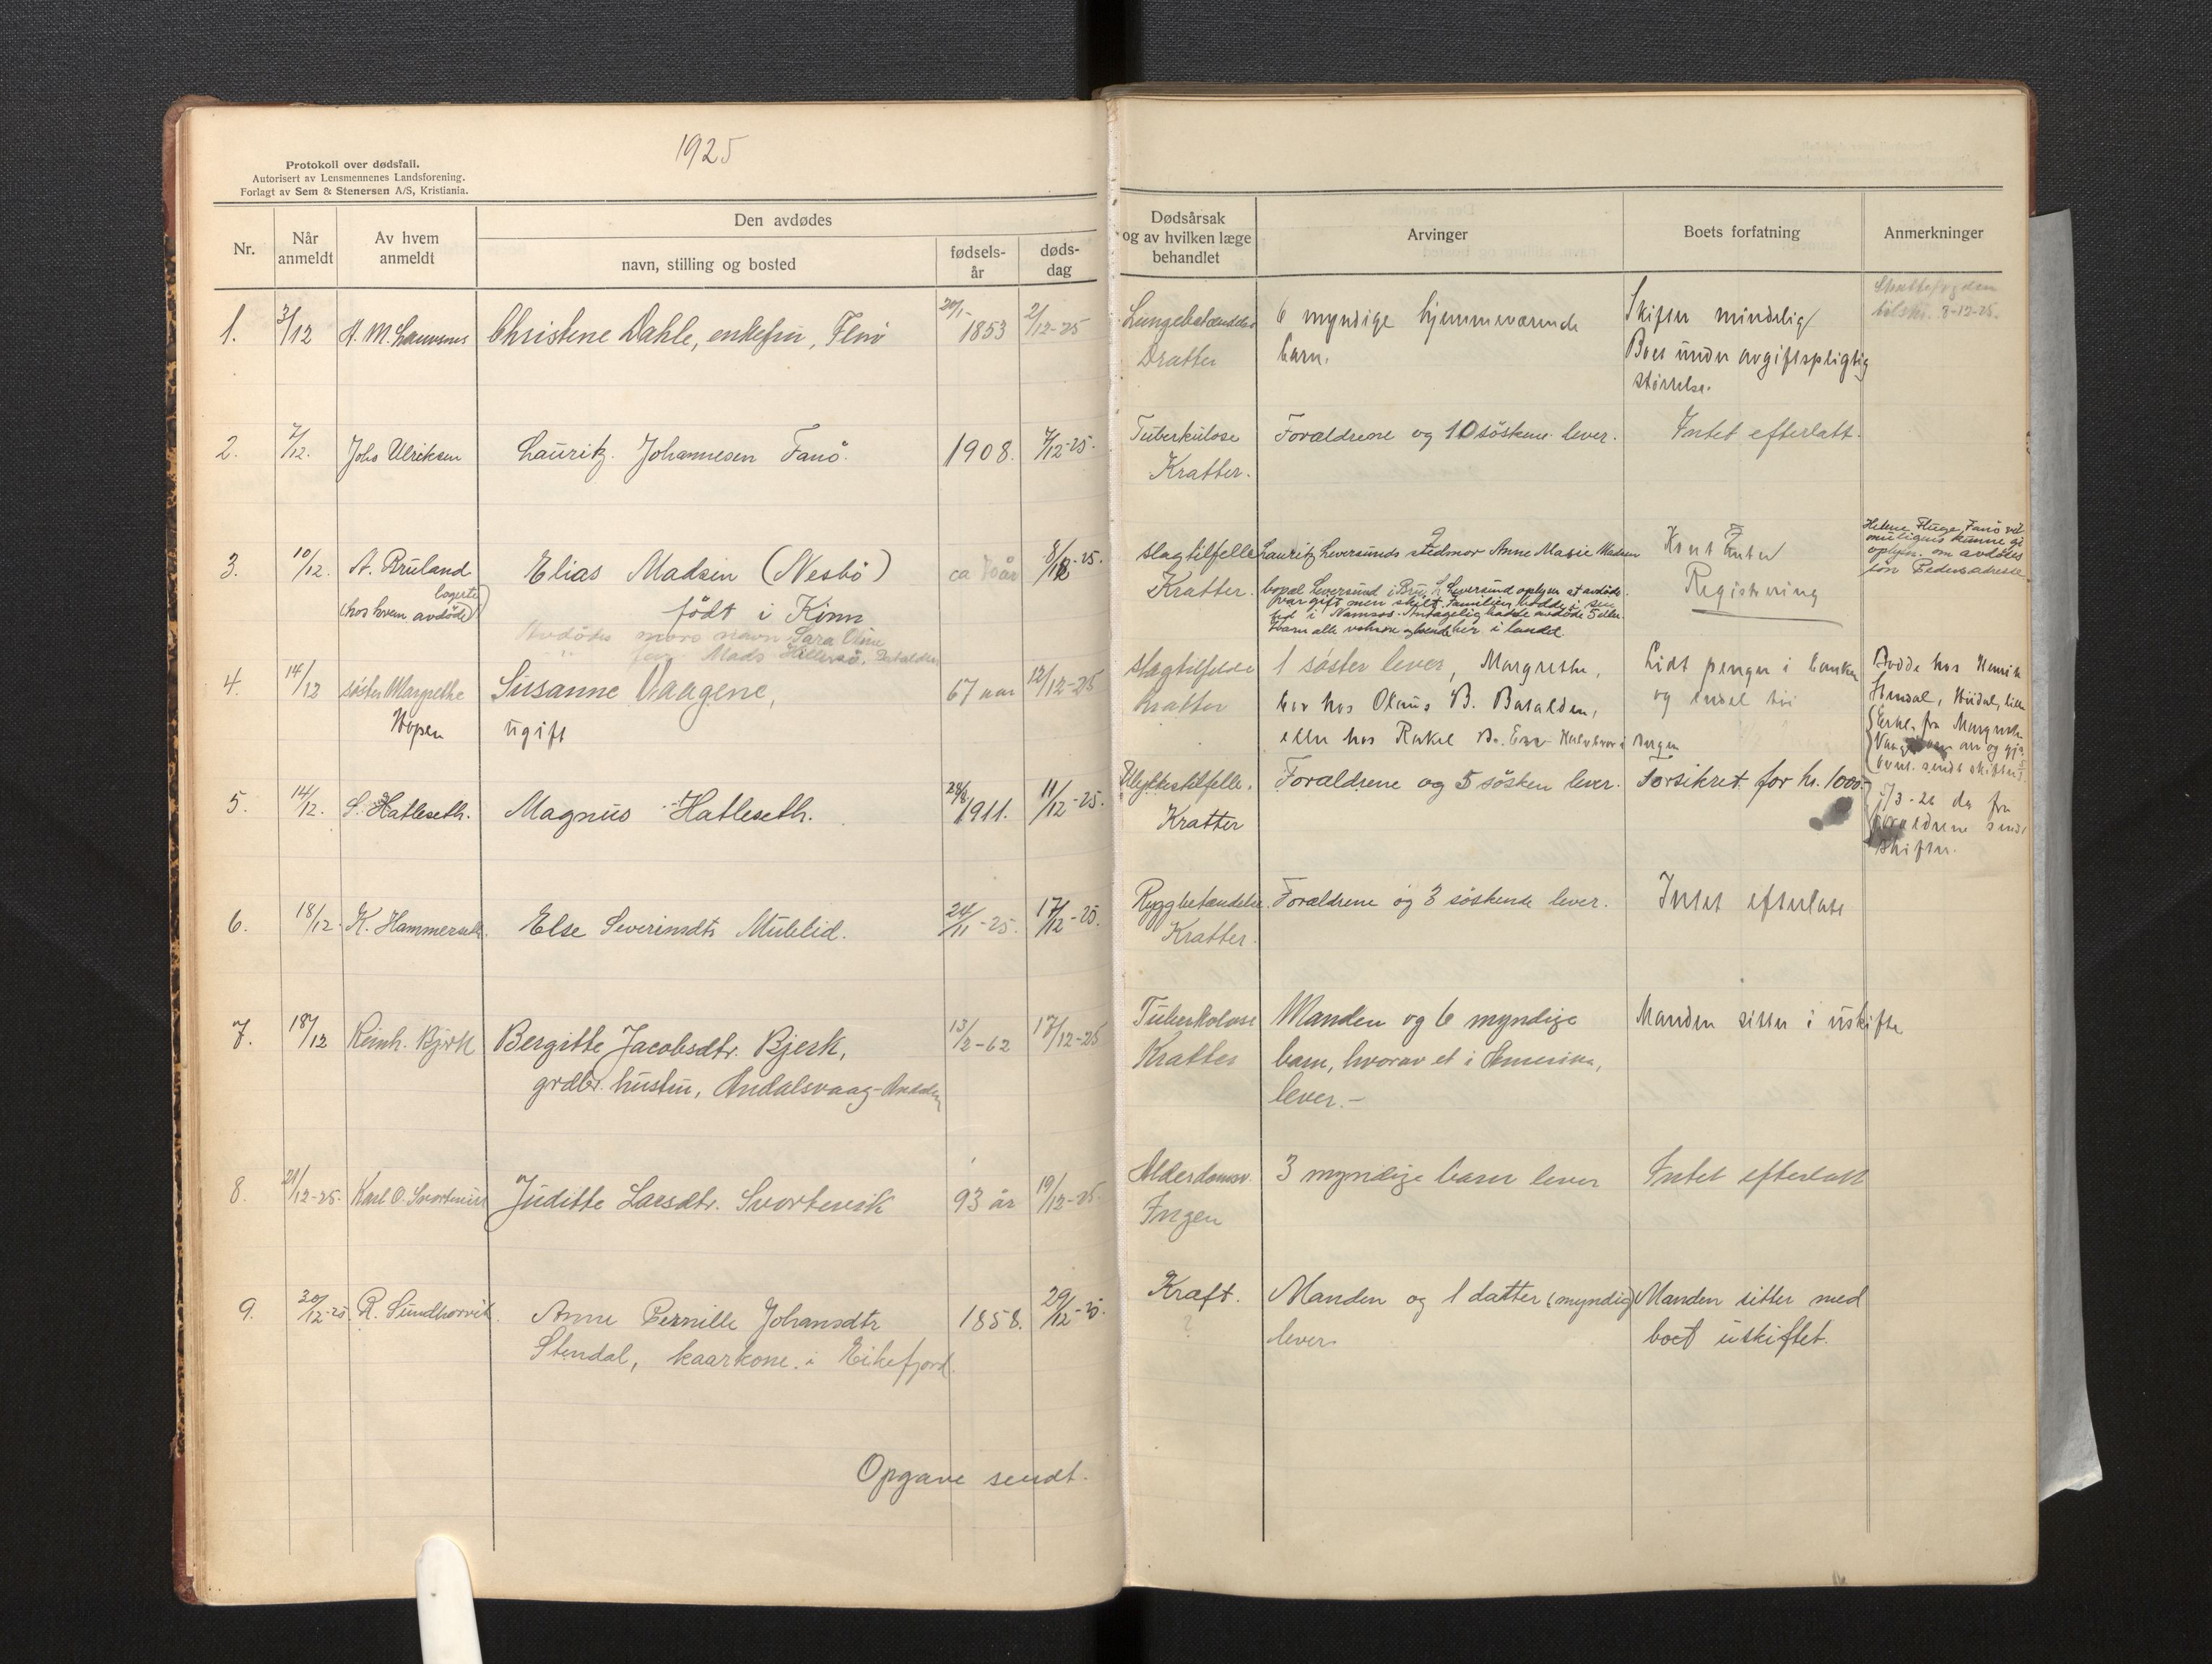 1925
Protokoll over dødsfall.
Autorisert av Lensmennenes Landsforening.
Forlagt av Sem & Stenersen A/S, Kristiania.
Nr.
Når anmeldt
Av hvem anmeldt
Den avdødes
navn, stilling og bosted
fødsels-år
døds-dag
Dødsårsak og av hvilken læge behandlet
Arvinger
Boets forfatning
Anmerkninger
1. 3/12 Christene Dahle, enkefru, 20/1- 1853 2/12-25
6 myndige hjemmeværende Skifter mindelig
barn. Boet under avgiftspligtig
størrelse.
8-12-25.
2. 7/12. Johs Ulriksen Lauritz Johannesen Fanö. 1908. 7/12-25.
Tuberkulose Forældrene og 10 söskene lever. Intet efterlatt.
Kratter.
3. 10/12. A. Bruland Elias Madsen (Nesbö) ca 8/12-25.
logerte
(hos hvem avdöde) födt i Kinn
Avdödes mors navn Sara
Mads
slagtilfelle Lauritz Leversunds stedmor Anne Marie Madsen
Kratter. bopæl Leversund i Bru. L. Leversund oplyser at avdöde
var gift men skilt. Familien bodde i sin
tid i Namsos. Antagelig hadde avdöde 5 eller
barn alle voksne og boende her i landet
Registrering
Helene Fluge, Fanö vil
muligens kunne gi
oplysn. om avdödes
sön Peders adresse
4. 14/12 søster Margrethe Susanne Vaagene, 67 aar 12/12-25
Hopen ugift
slagtilfelde 1 søster lever, Margrethe, Lidt penger i banken
Kratter bor hos Olaus B. Batalden, og endel
eller hos Rakel Bergen
Døde hos Henrik
5. 14/12. S. Hatleseth. Magnus Hatleseth. 28/8 1911. 11/12-25.
Ulykkestilfelle. Forældrene og 5 søsken lever. Forsikret for kr. 1000
Kratter
forældrene sendt
skifter.
6. 18/12. K. Hammerseth. Else Severinsdtr 24/11-25. 17/12-25.
Ryggbetændelse. Forældrene og 3 söskende lever. Intet efterlatt
Kratter.
7. 18/12 Reinh. Bjerk Bergitte Jacobsdtr. Bjerk, 13/2-62 17/12-25
grdbr. hustru, Andalsvaag-
Tuberkolose Manden og 6 myndige Manden sitter i uskifte
Kratter barn, hvorav et i Amerika,
lever.-
8. 21/12-25. Karl O. Svortevik Juditte Larsdtr. Svortevik 93 år 19/12-25.
Alderdomsv. 3 myndige barn lever Intet efterlatt
Ingen
9. 30/12-25 R. Sundhorvik. Anne Pernille Johansdtr 1858. 29/12-25.
Stendal, kaarkone i Eikefjord.
Kraft. Manden og 1 datter (myndig) Manden sitter med
? lever. boet uskiftet.
Opgave sendt.